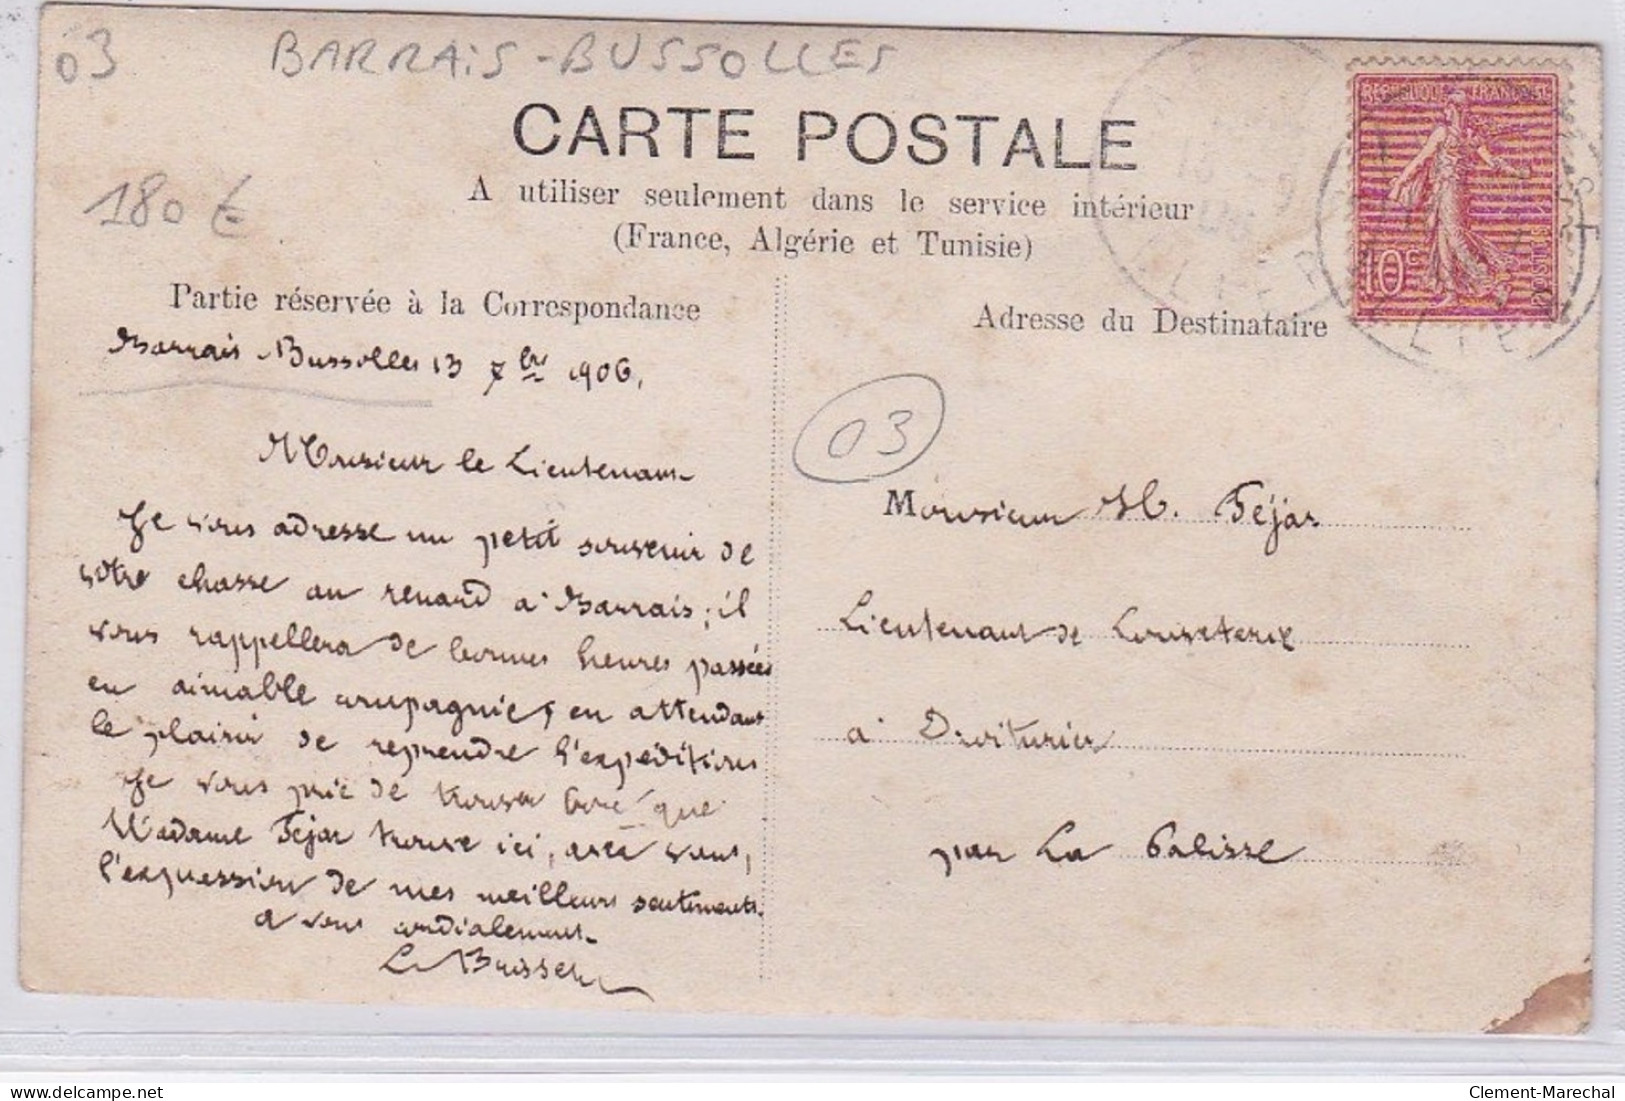 03
BARRAIS-BUSSOLLES
CARTE POSTALE
180 €
A utiliser seulement dans le service intérieur
(France, Algérie et Tunisie)
RÉPUBLIQUE FRANÇAISE
10c
POSTES
ALLIER
ALLIER
Partie réservée à la Correspondance
Adresse du Destinataire
Barrais-Bussolles 13 7bre 1906.
Monsieur le Lieutenant
Je vous adresse un petit souvenir de
votre chasse au renard à Barrais; il
vous rappellera de bonnes heures passées
en aimable compagnie, en attendant
le plaisir de reprendre l'expéditions
Je vous prie de trouver que
Madame Féjar trouve ici, avec vous,
l'expression de mes meilleurs sentiments.
à vous cordialement
03
Monsieur H. Féjar
Lieutenant de Louveterie
à Droiturier
par La Palisse
delcampe.net
Clement-Marechal